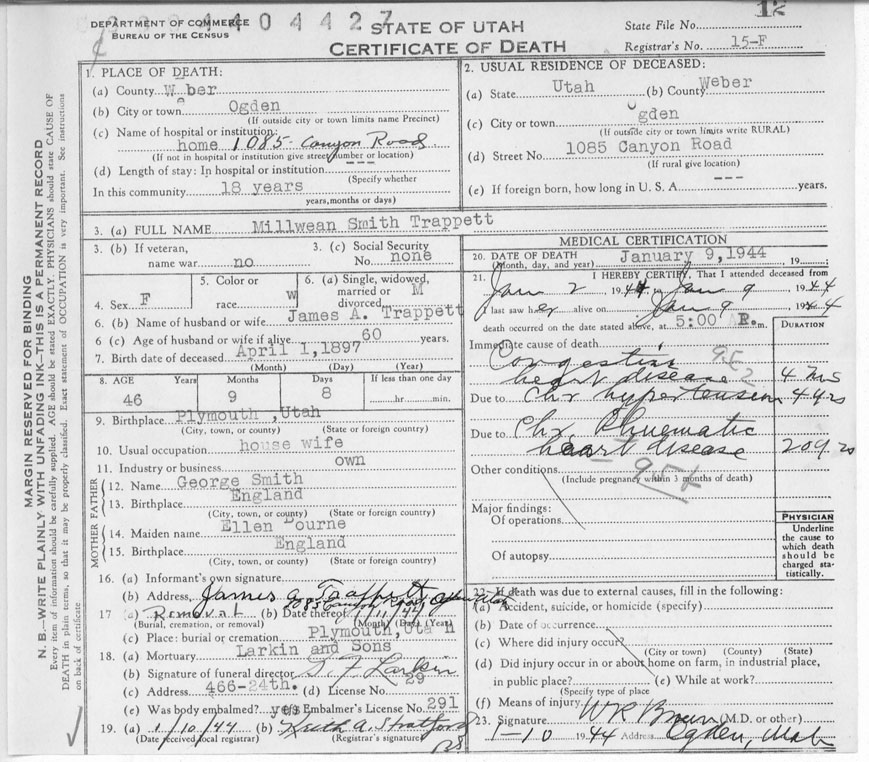 DEPARTMENT OF COMMERCE
BUREAU OF THE CENSUS
4404427
STATE OF UTAH
CERTIFICATE OF DEATH
12
State File No.
Registrar's No. 15-F
MARGIN RESERVED FOR BINDING
N. B.—WRITE PLAINLY WITH UNFADING INK—THIS IS A PERMANENT RECORD
Every item of information should be carefully supplied. AGE should be stated EXACTLY. PHYSICIANS should state CAUSE OF
DEATH in plain terms, so that it may be properly classified. Exact statement of OCCUPATION is very important. See instructions
on back of certificate
1. PLACE OF DEATH:
(a) County Weber
(b) City or town Ogden
(If outside city or town limits name Precinct)
(c) Name of hospital or institution:
home 1085 Canyon Road
(If not in hospital or institution give street number or location)
(d) Length of stay: In hospital or institution ---
(Specify whether
In this community 18 years
years, months or days)
2. USUAL RESIDENCE OF DECEASED:
(a) State Utah (b) County Weber
(c) City or town Ogden
(If outside city or town limits write RURAL)
(d) Street No. 1085 Canyon Road
(If rural give location)
(e) If foreign born, how long in U. S. A. --- years.
3. (a) FULL NAME Millwean Smith Trappett
3. (b) If veteran, name war no
3. (c) Social Security No. none
4. Sex F
5. Color or race W
6. (a) Single, widowed, married or divorced M
6. (b) Name of husband or wife James A. Trappett
6 (c) Age of husband or wife if alive 60 years.
7. Birth date of deceased April 1,1897
(Month) (Day) (Year)
8. AGE Years Months Days If less than one day
46 9 8 hr. min.
9. Birthplace Plymouth ,Utah
(City, town, or county) (State or foreign country)
10. Usual occupation house wife
11. Industry or business own
FATHER
12. Name George Smith
13. Birthplace England
(City, town, or county) (State or foreign country)
MOTHER
14. Maiden name Ellen Bourne
15. Birthplace England
(City, town, or county) (State or foreign country)
16. (a) Informant's own signature James A Trappett
(b) Address 1085 Canyon Road Ogden Utah
17 (a) Removal (b) Date thereof 1/11/1944
(Burial, cremation, or removal) (Month) (Day) (Year)
(c) Place: burial or cremation Plymouth, Utah
18. (a) Mortuary Larkin and Sons
(b) Signature of funeral director Larkin
(c) Address 466-24th. (d) License No. 29
(e) Was body embalmed? yes (f) Embalmer's License No. 291
19. (a) 1/10/44 (b) Keith A. Stratford
(Date received local registrar) (Registrar's signature)
MEDICAL CERTIFICATION
20. DATE OF DEATH January 9,1944 19
(Month, day, and year)
21. I HEREBY CERTIFY, That I attended deceased from
Jan 2 1944 to Jan 9 1944
I last saw her alive on Jan 9 1944
death occurred on the date stated above, at 5:00 P. m.
DURATION
Immediate cause of death
Congestive
heart disease 4 mos
Due to Chr hypertension 4 yrs
Due to Chr. Rhuematic
heart disease 20 yrs
95
Other conditions
(Include pregnancy within 3 months of death)
Major findings:
Of operations
Of autopsy
PHYSICIAN
Underline
the cause to
which death
should be
charged sta-
tistically.
22. If death was due to external causes, fill in the following:
(a) Accident, suicide, or homicide (specify)
(b) Date of occurrence
(c) Where did injury occur?
(City or town) (County) (State)
(d) Did injury occur in or about home on farm, in industrial place,
in public place? (e) While at work?
(Specify type of place
(f) Means of injury
23. Signature W R Brown (M.D. or other)
1-10 1944 Address Ogden, Utah